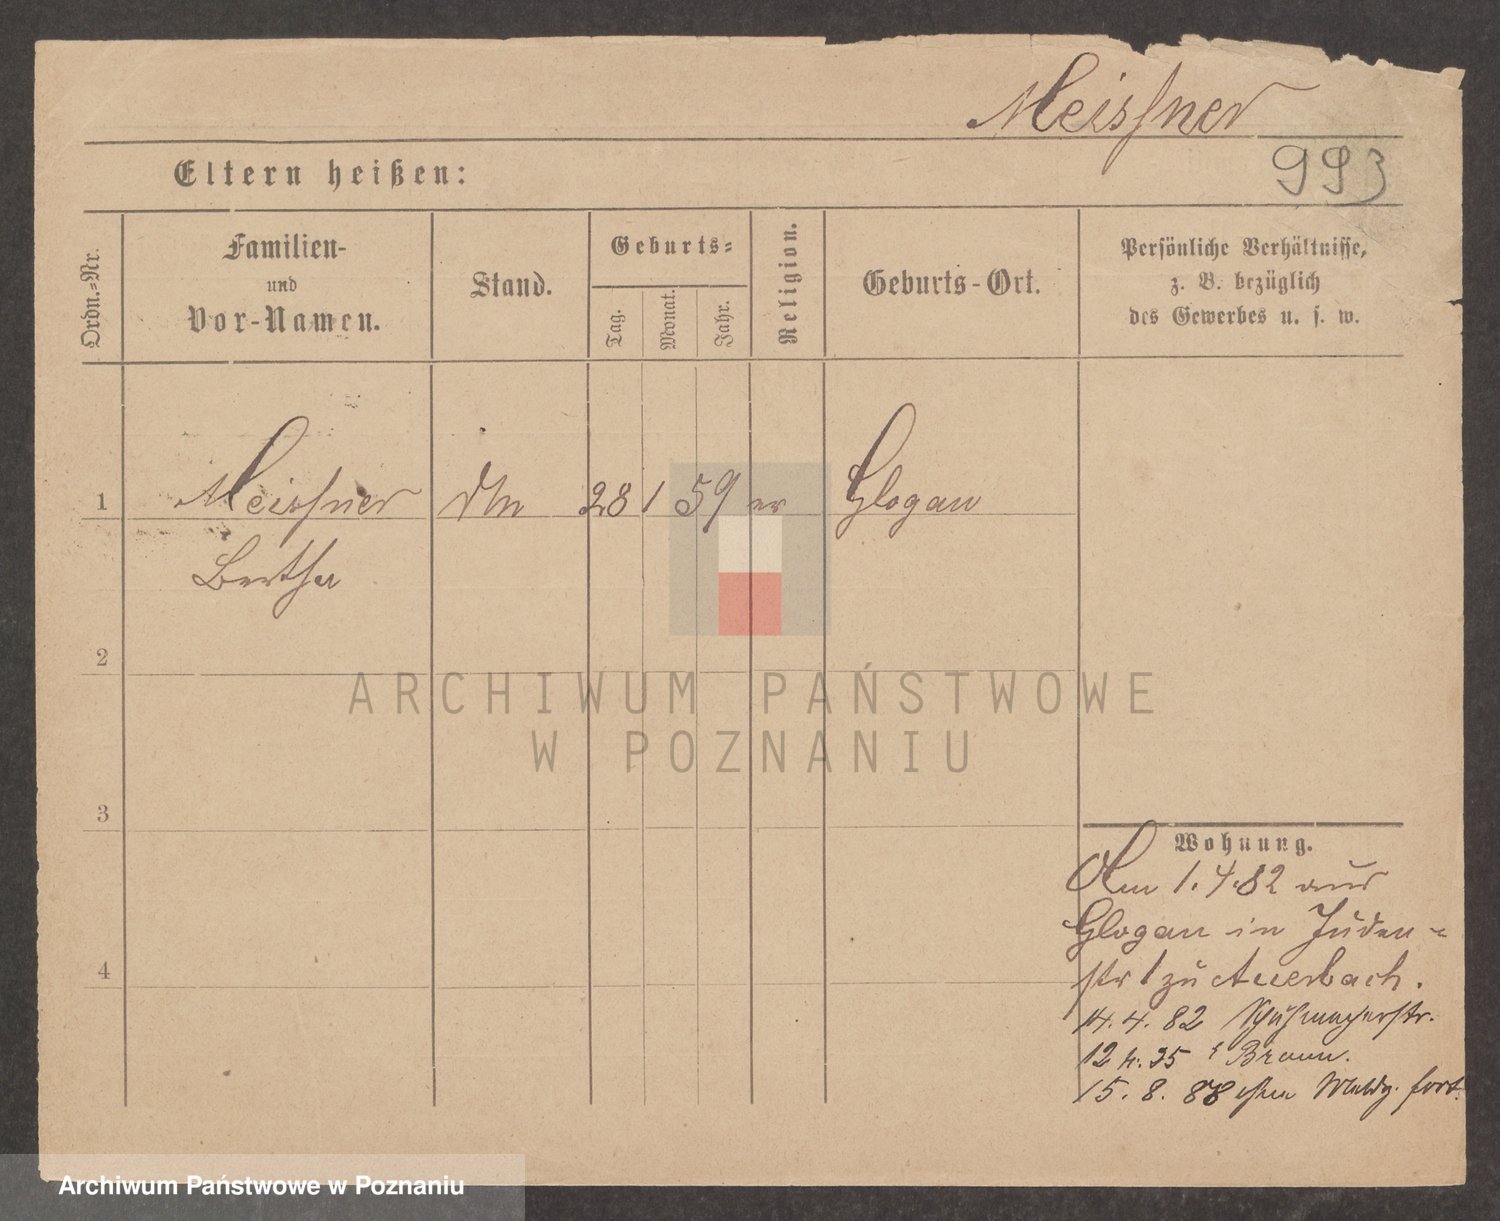 Meissner
993
Eltern heißen:
Ordn.-Nr.
Familien-
und
Vor-Namen.
Stand.
Geburts-
Tag.
Monat.
Jahr.
Religion.
Geburts-Ort.
Persönliche Verhältnisse,
z. B. bezüglich
des Gewerbes u. s. w.
1 Meissner 28 1 59 Glogau
Bertha
2
3
4
ARCHIWUM PAŃSTWOWE
W POZNANIU
Wohnung.
Am 1.4.82 aus
Glogau in Juden-
str 1 zu Auerbach.
14.4.82 Schuhmacherstr.
12 Braun.
15.8.88 fort.
Archiwum Państwowe w Poznaniu